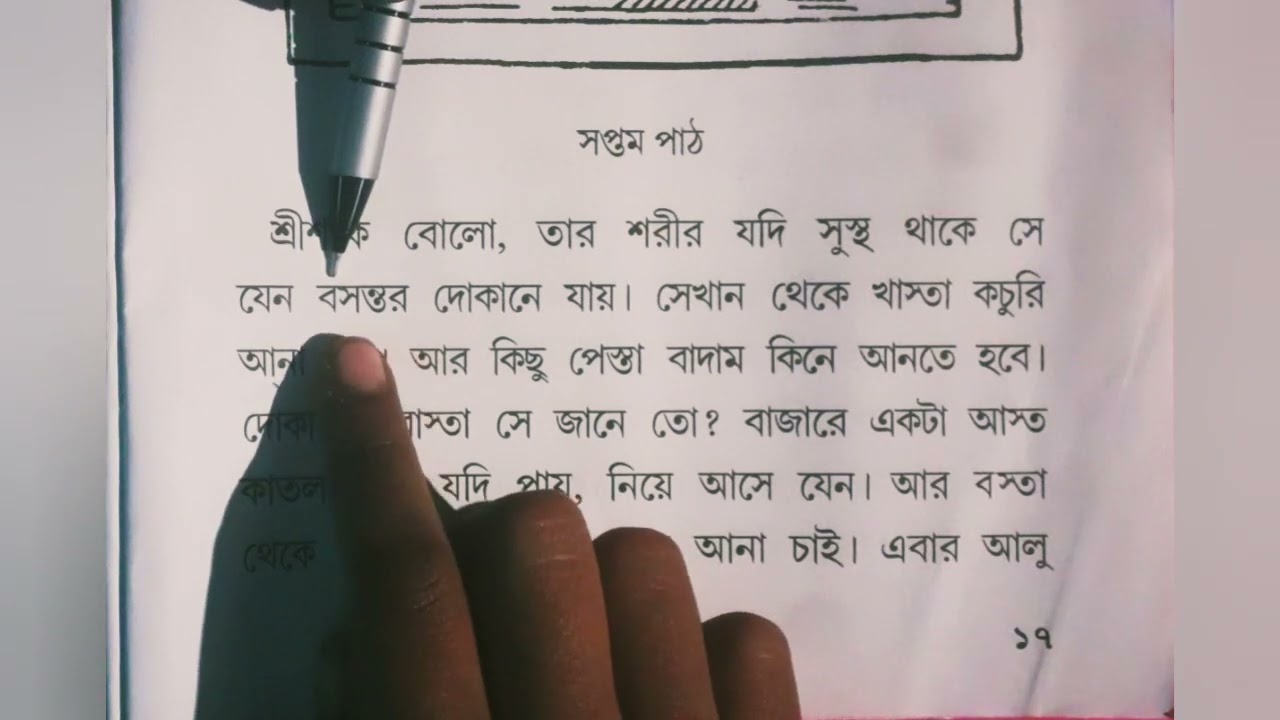 সপ্তম পাঠ
বোলো, তার শরীর যদি সুস্থ থাকে সে
যেন বসন্তর দোকানে যায়। সেখান থেকে খাস্তা কচুরি
আনা আর কিছু পেস্তা বাদাম কিনে আনতে হবে।
সে জানে তো? বাজারে একটা আস্ত
যদি পায়, নিয়ে আসে যেন। আর বস্তা
থেকে আনা চাই। এবার আলু
১৭